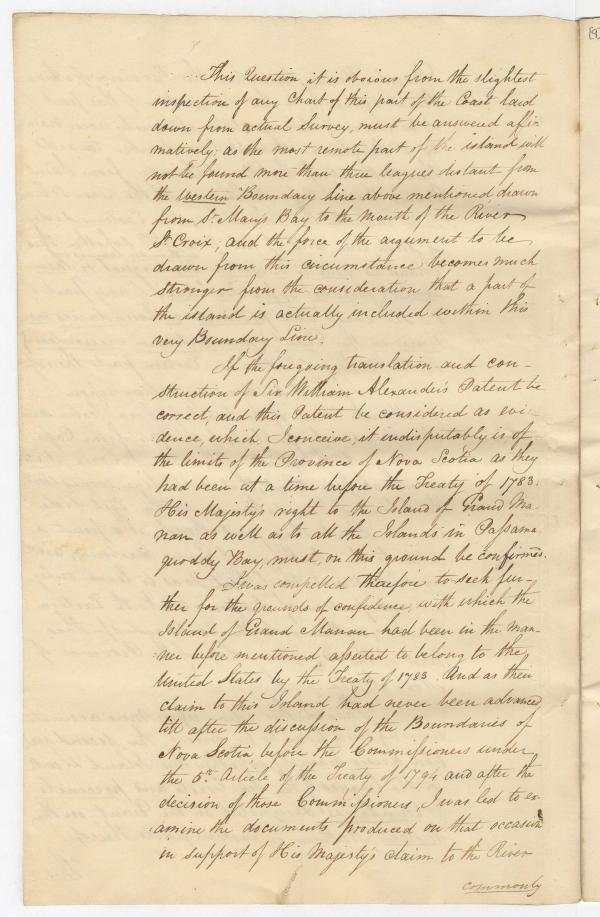 This Question it is obvious from the slightest
inspection of any Chart of this part of the Coast laid
down from actual Survey, must be answered affir-
matively; as the most remote part of the island will
not be found more than three leagues distant from
the Western Boundary Line above mentioned drawn
from St. Marys Bay to the Mouth of the River
St. Croix; and the force of the argument to be
drawn from this circumstance becomes much
stronger from the consideration that a part of
the island is actually included within this
very Boundary Line.
If the foregoing translation and con-
struction of Sir William Alexander's Patent be
correct, and this Patent be considered as evi-
dence, which I conceive, it indisputably is of
the limits of the Province of Nova Scotia as they
had been at a time before the Treaty of 1783.
His Majesty's right to the Island of Grand Ma-
nan as well as to all the Islands in Passama
quoddy Bay, must, on this ground be confirmed.
I was compelled therefore to seek fur-
ther for the grounds of confidence, with which the
Island of Grand Manan had been in the man-
ner before mentioned asserted to belong to the
United States by the Treaty of 1783. And as their
claim to this Island had never been advanced
till after the discussion of the Boundaries of
Nova Scotia before the Commissioners under
the 5th. Article of the Treaty of 1794 and after the
decision of those Commissioners, I was led to ex-
amine the documents produced on that occasion
in support of His Majesty's claim to the River
commonly